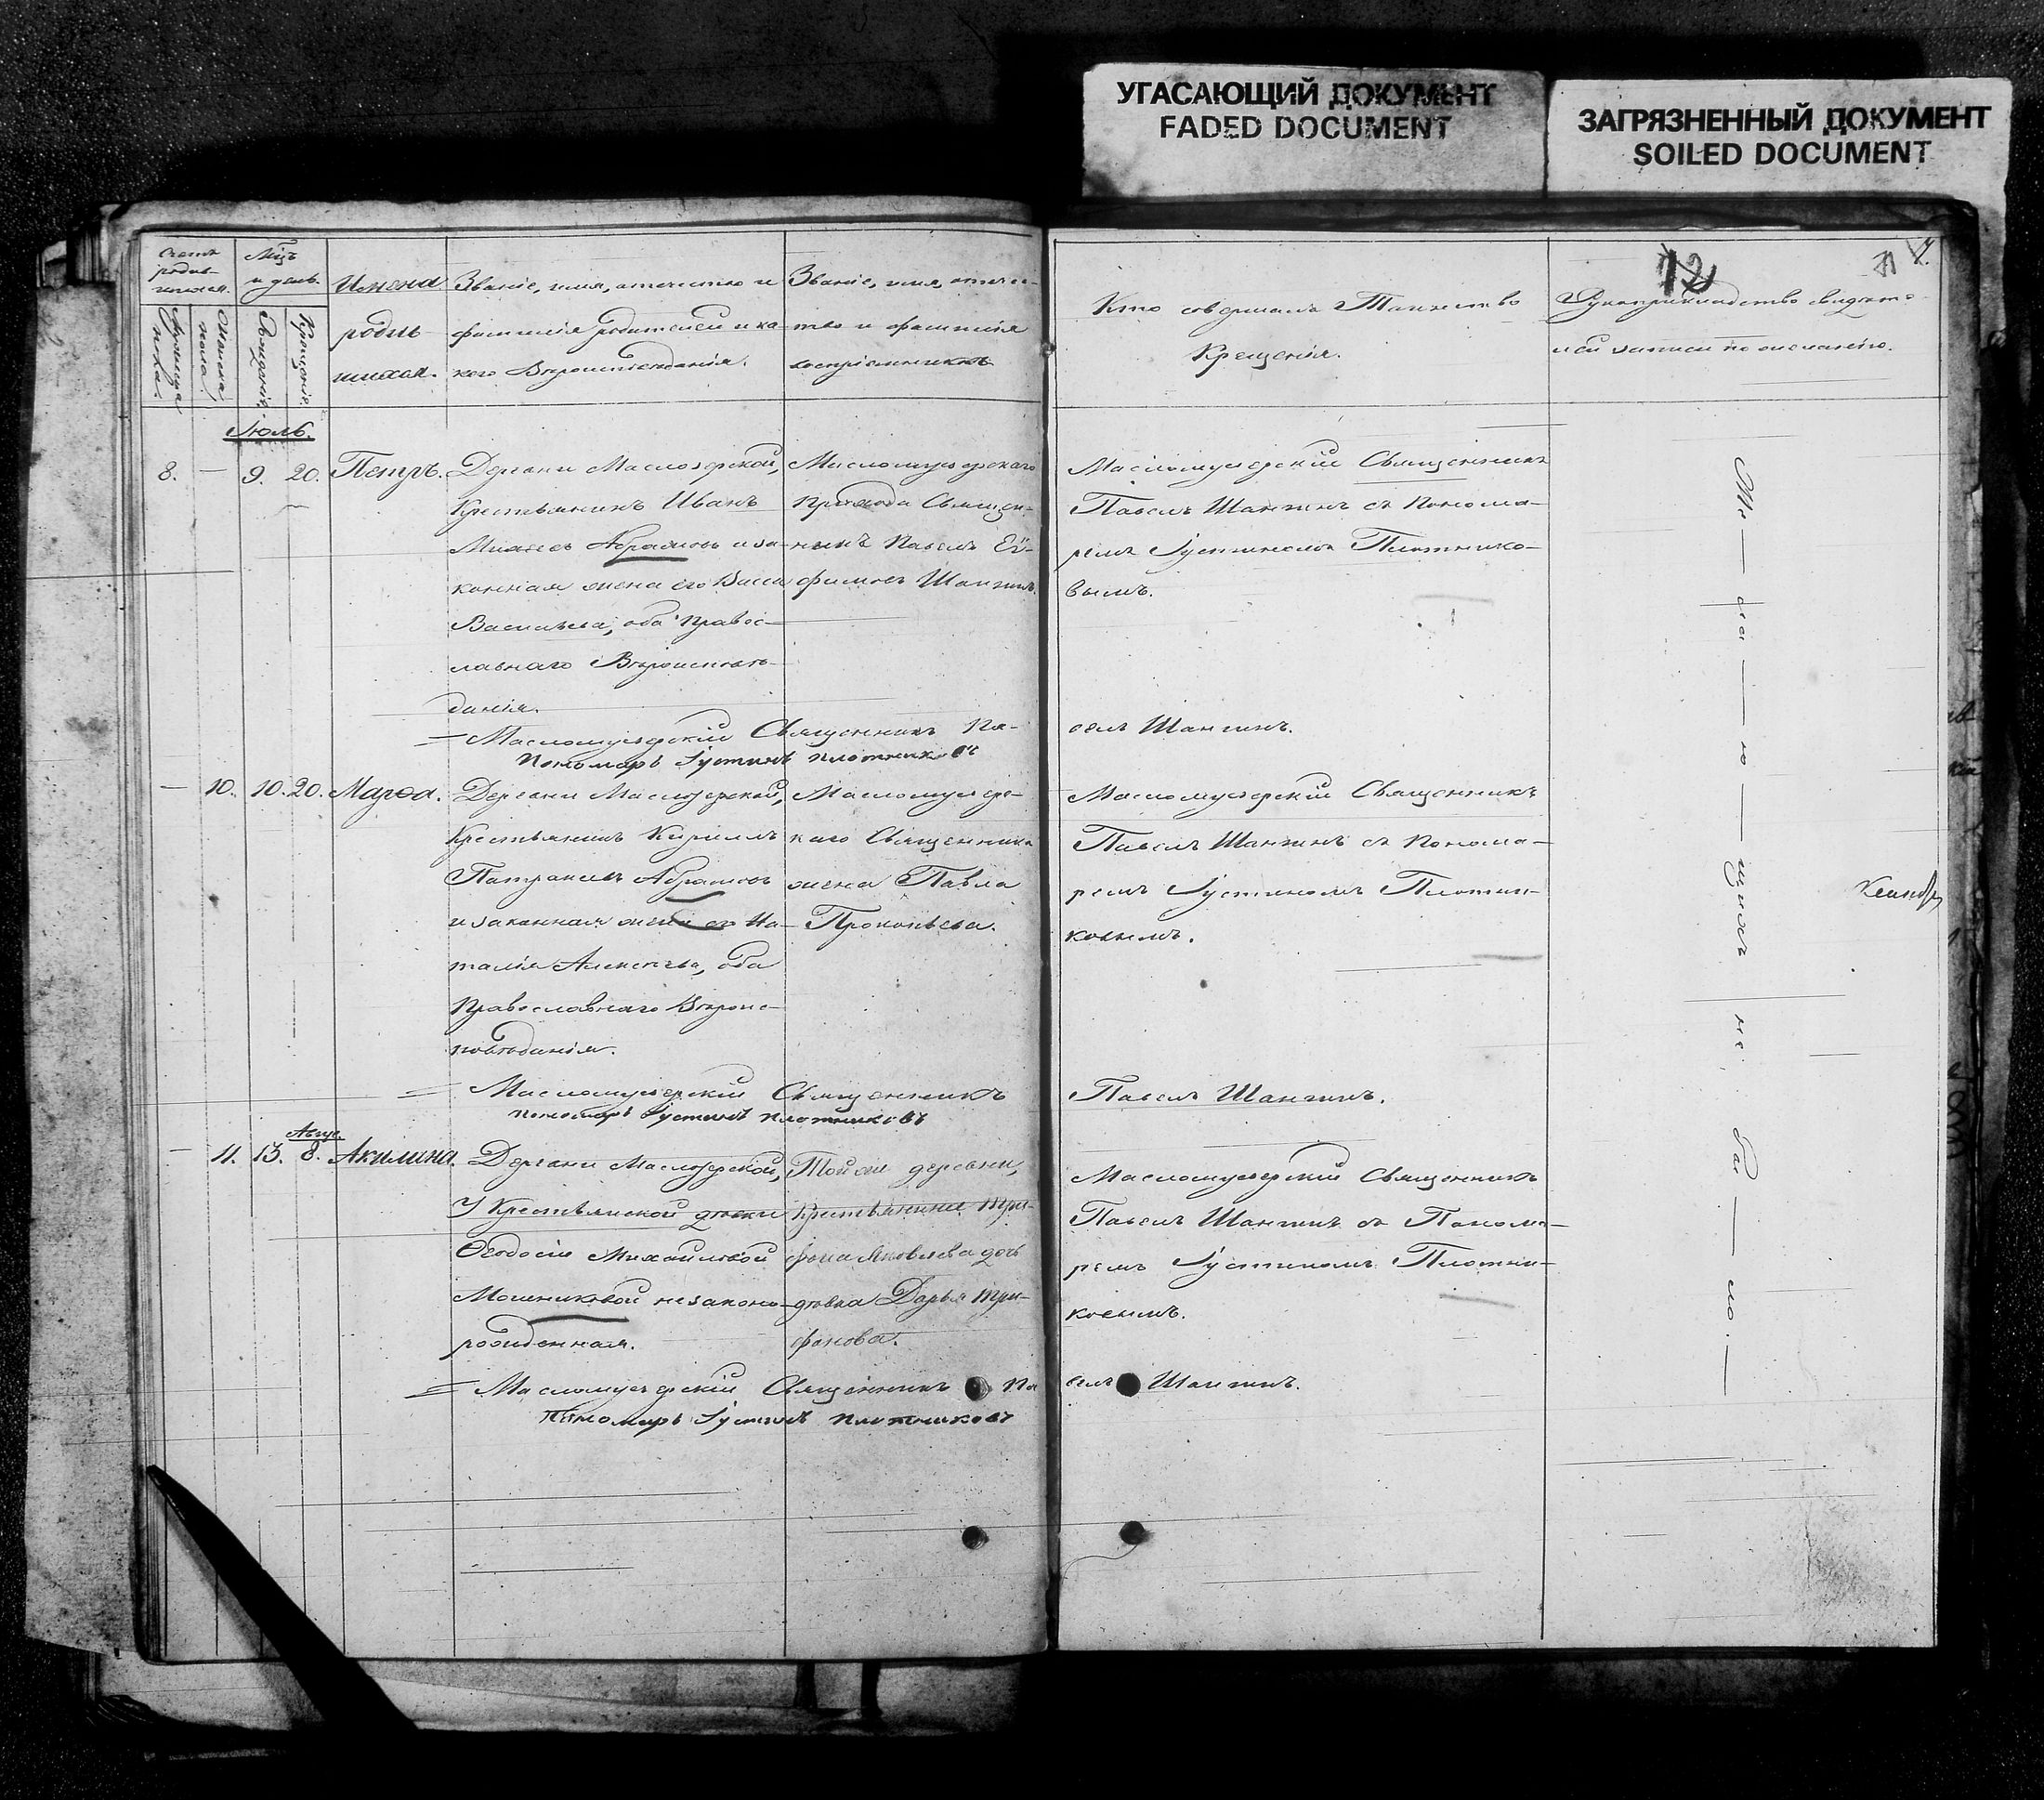 УГАСАЮЩИЙ ДОКУМЕНТ
FADED DOCUMENT
ЗАГРЯЗНЕННЫЙ ДОКУМЕНТ
SOILED DOCUMENT
12
Счетъ
родив-
шихся.
Мужеска
пола.
Женска
пола.
Мцъ
и день.
Рожденія.
Крещенія.
Имена
родив-
шихся.
Званіе, имя, отчество и
фамилія родителей и ка-
кого Вѣроисповѣданія.
Званіе, имя, отчес-
тво и фамилія
воспріемниковъ
Кто совершалъ Таинство
Крещенія.
Рукоприкладство свидѣте-
лей записи по желанію.
Іюль.
8. — 9. 20. Петръ.
Деревни Маслозерской,
Крестьянинъ Иванъ
Абрамовъ и за-
конная жена его Васса
Васильева, оба Правос-
лавнаго Вѣроисповѣ-
данія.
Масломузерскаго
Прихода Священ-
никъ Павелъ
Шангинъ.
Масломузерскій Священникъ
Павелъ Шангинъ съ Понома-
ремъ Іустиномъ Плотнико-
вымъ.
= Масломузерскій Священникъ Па-
велъ Шангинъ.
Пономарь Іустинъ Плотниковъ
— 10. 10. 20. Марѳа.
Деревни Маслозерской,
Крестьянинъ Кириллъ
Патракиевъ Абрамовъ
и законная жена его На-
талія Алексѣева, оба
Православнаго Вѣроис-
повѣданія.
Масломузерс-
каго Священника
жена Павла
Прокопьева.
Масломузерскій Священникъ
Павелъ Шангинъ съ Понома-
ремъ Іустиномъ Плотни-
ковымъ.
= Масломузерскій Священникъ
Павелъ Шангинъ.
Пономарь Іустинъ Плотниковъ
Авгус.
— 11. 13. 8. Акилина.
Деревни Маслозерской,
У Крестьянской дѣвки
Ѳеодосіи Михайловой
Мошниковой незаконо-
рожденная.
Той же деревни,
Крестьянина Три-
фона Яковлева дочь
дѣвка Дарья Три-
фонова.
Масломузерскій Священникъ
Павелъ Шангинъ съ Понома-
ремъ Іустиномъ Плотни-
ковымъ.
= Масломузерскій Священникъ Па
велъ Шангинъ.
Пономарь Іустинъ Плотниковъ
Же — ла — ю — щихъ не бы — ло. —